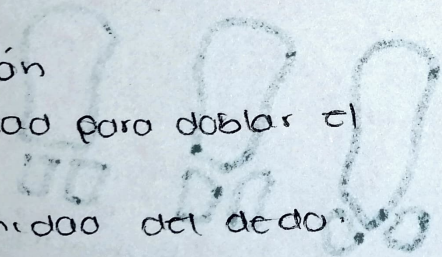 ón
ad para doblar el
midad del dedo.